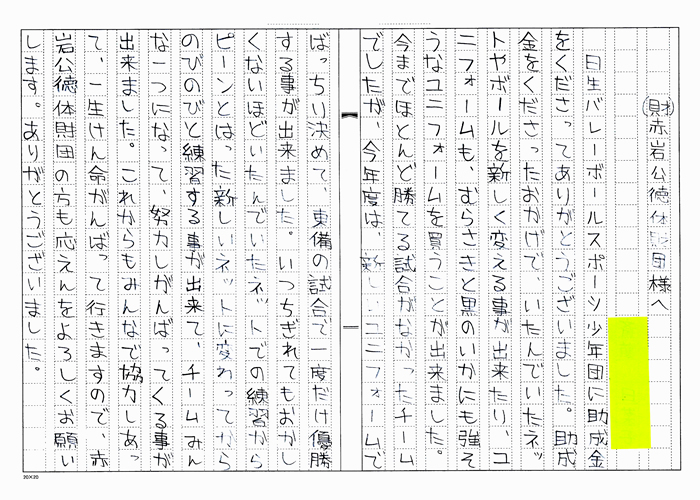 (財)赤岩公徳体財団様へ
日生バレーボールスポーツ少年団に助成金
をくださってありがとうございました。助成
金をくださったおかげで、いたんでいたネッ
トやボールを新しく変える事が出来たり、ユ
ニフォームも、むらさきと黒のいかにも強そ
うなユニフォームを買うことが出来ました。
今までほとんど勝てる試合がなかったチーム
でしたが、今年度は、新しいユニフォームで
ばっちり決めて、東備の試合で一度だけ優勝
する事が出来ました。いつちぎれてもおかし
くないほどいたんでいたネットでの練習から
ピーンとはった新しいネットに変わってから
のびのびと練習する事が出来て、チームみん
な一つになって、努力しがんばってくる事が
出来ました。これからもみんなで協力しあっ
て、一生けん命がんばって行きますので、赤
岩公徳体財団の方も応えんをよろしくお願い
します。ありがとうございました。
20×20